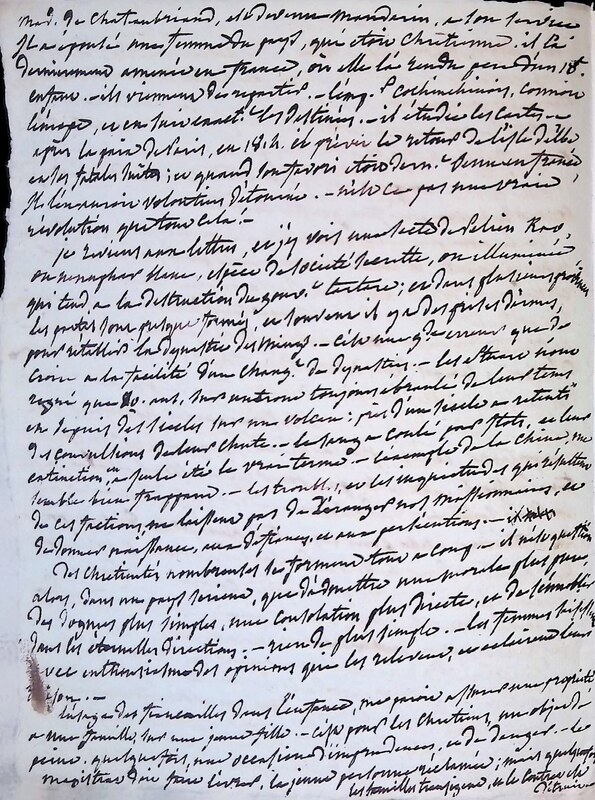 mad. de Chateaubriand, et devenu mandarin, a son service
il a épousé une femme du pays, qui etoit Chretienne. il l'a
dernierement amenée en france, où elle l'a rendu pere d'un 18e.
enfant. - ils viennent de repartir. - l'emp.r Cochinchinois, connoit
l'europe, et en suit exact.t les destinées. - il étudie les cartes -
après la paix de Paris, en 1814. il prévit le retour de l'isle d'elbe
en les fatales suites; et quand son favori etoit dern.t venu en france
il l'en auroit volontiers détourné. - n'est ce pas une vraie
révolution que tout cela! -
je reviens aux lettres, et j'y vois une secte de Pelien Kao,
ou nenuphar blanc, espèce de société secrette, ou illuminée
qui tend a la destruction du gouv.t tartare; et dans plusieurs provinces
les pactes sont presque formés, et souvent il y a des prises d'armes,
pour rétablir la dynastie des mings. - C'est une g.de erreur que de
croire a la facilité d'un chang.t de dynasties. - les stuart n'ont
regné que 80. ans, sur un trone toujours ébranlé de leur tems
et depuis des siecles sur un volcan: près d'un siecle a retenti
des convulsions de leur chute. - le sang a coulé par flots, et leur
extinction, en a seule été le vrai terme. - l'exemple de la Chine, me
semble bien frappant. - les troubles, et les inquietudes qui résultent
de ces factions, ne laissent pas de déranger nos missionnaires, et
de donner naissance, aux défiances, et aux persécutions. -
Des Chretientés nombreuses se forment tout a coup - il n'est question
alors, dans un pays serieux, que d'admettre une morale plus pure,
des dogmes plus simples, une consolation plus directe, et de s'ennoblir
dans les éternelles directions. - rien de plus simple. - les femmes saisissent
avec enthousiasme des opinions qui les relevent, et eclairent leur
raison. -
L'usage des fiancailles dans l'enfance, me paroit assurer une propriété
a une famille, sur une jeune fille. - C'est pour les Chretiens, un objet de
peine, quelquefois, une occasion d'imprudences, et de danger. - le
magistrat doit faire livrer, la jeune personne réclamée; mais quelquefois
les familles transigent, et le contrat est
détruit